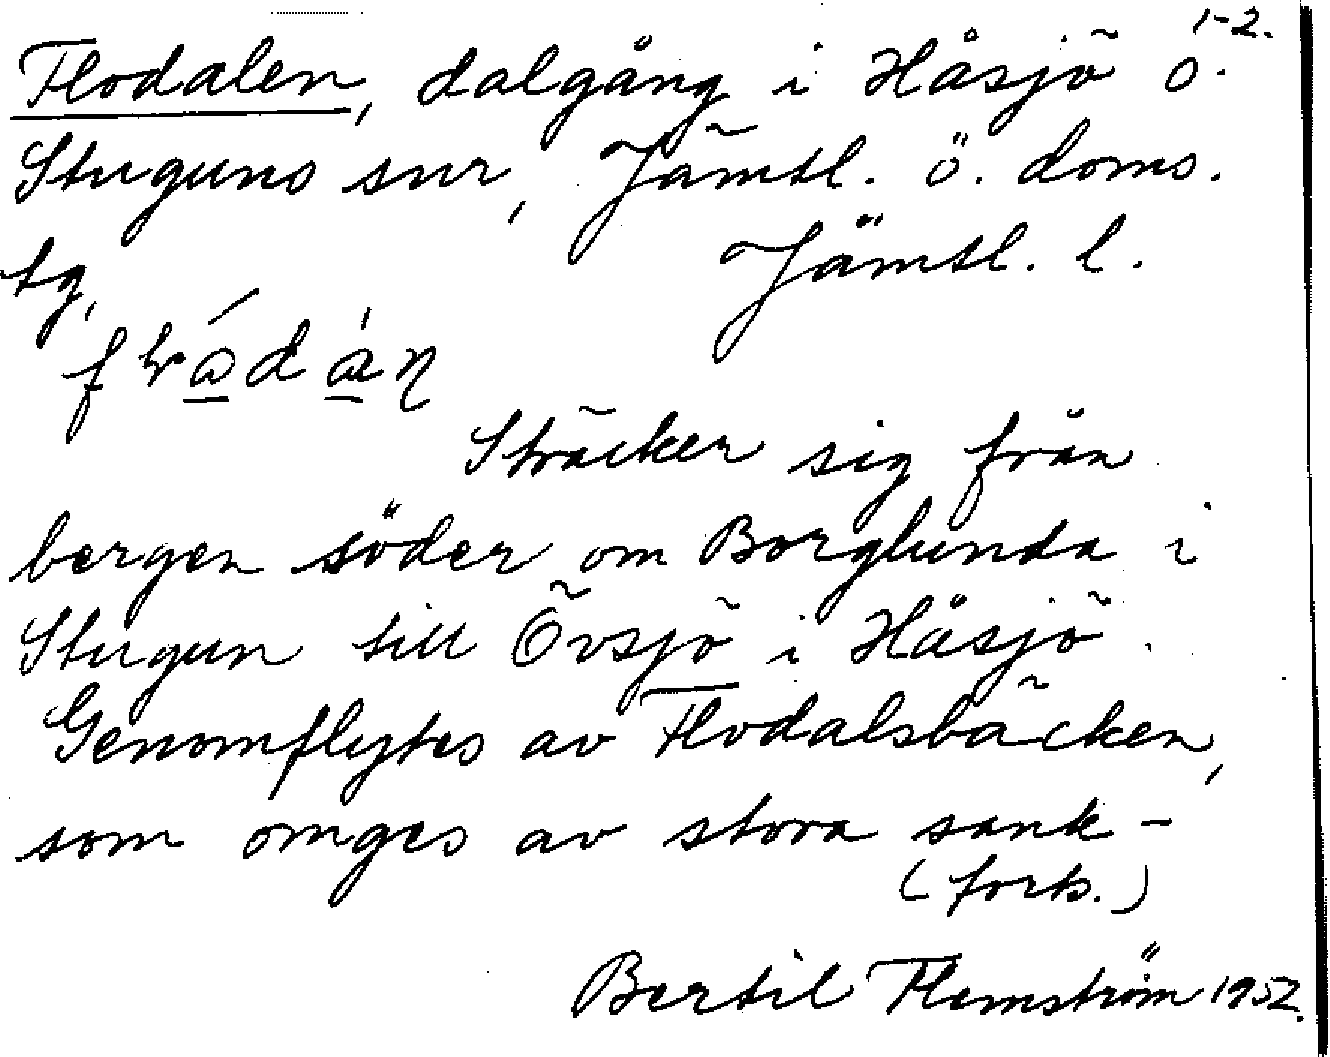 1-2.
Flodalen, dalgång i Håsjö o.
Stuguns snr, Jämtl. ö. doms.
tg,
Jämtl. l.
Sträcker sig från
bergen söder om Borglunda i
Stugun till Övsjö i Håsjö.
Genomflytes av Flodalsbäcken,
som omges av stora sank-
(forts.)
Bertil Flemström 1952.